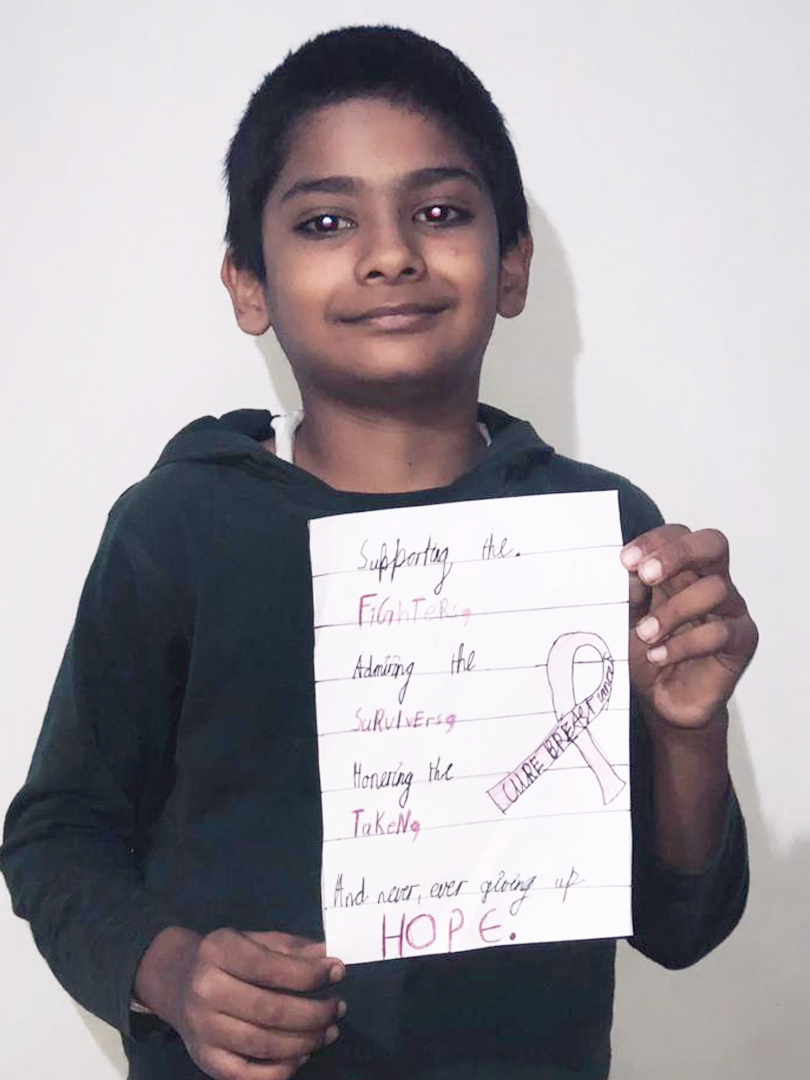 Supporting the.
FiGhTeRs,
Admiring the
SuRvIvErs,
Honering the
TaKeN,
CURE BREAST cancer
And never, ever giving up
HOPE.